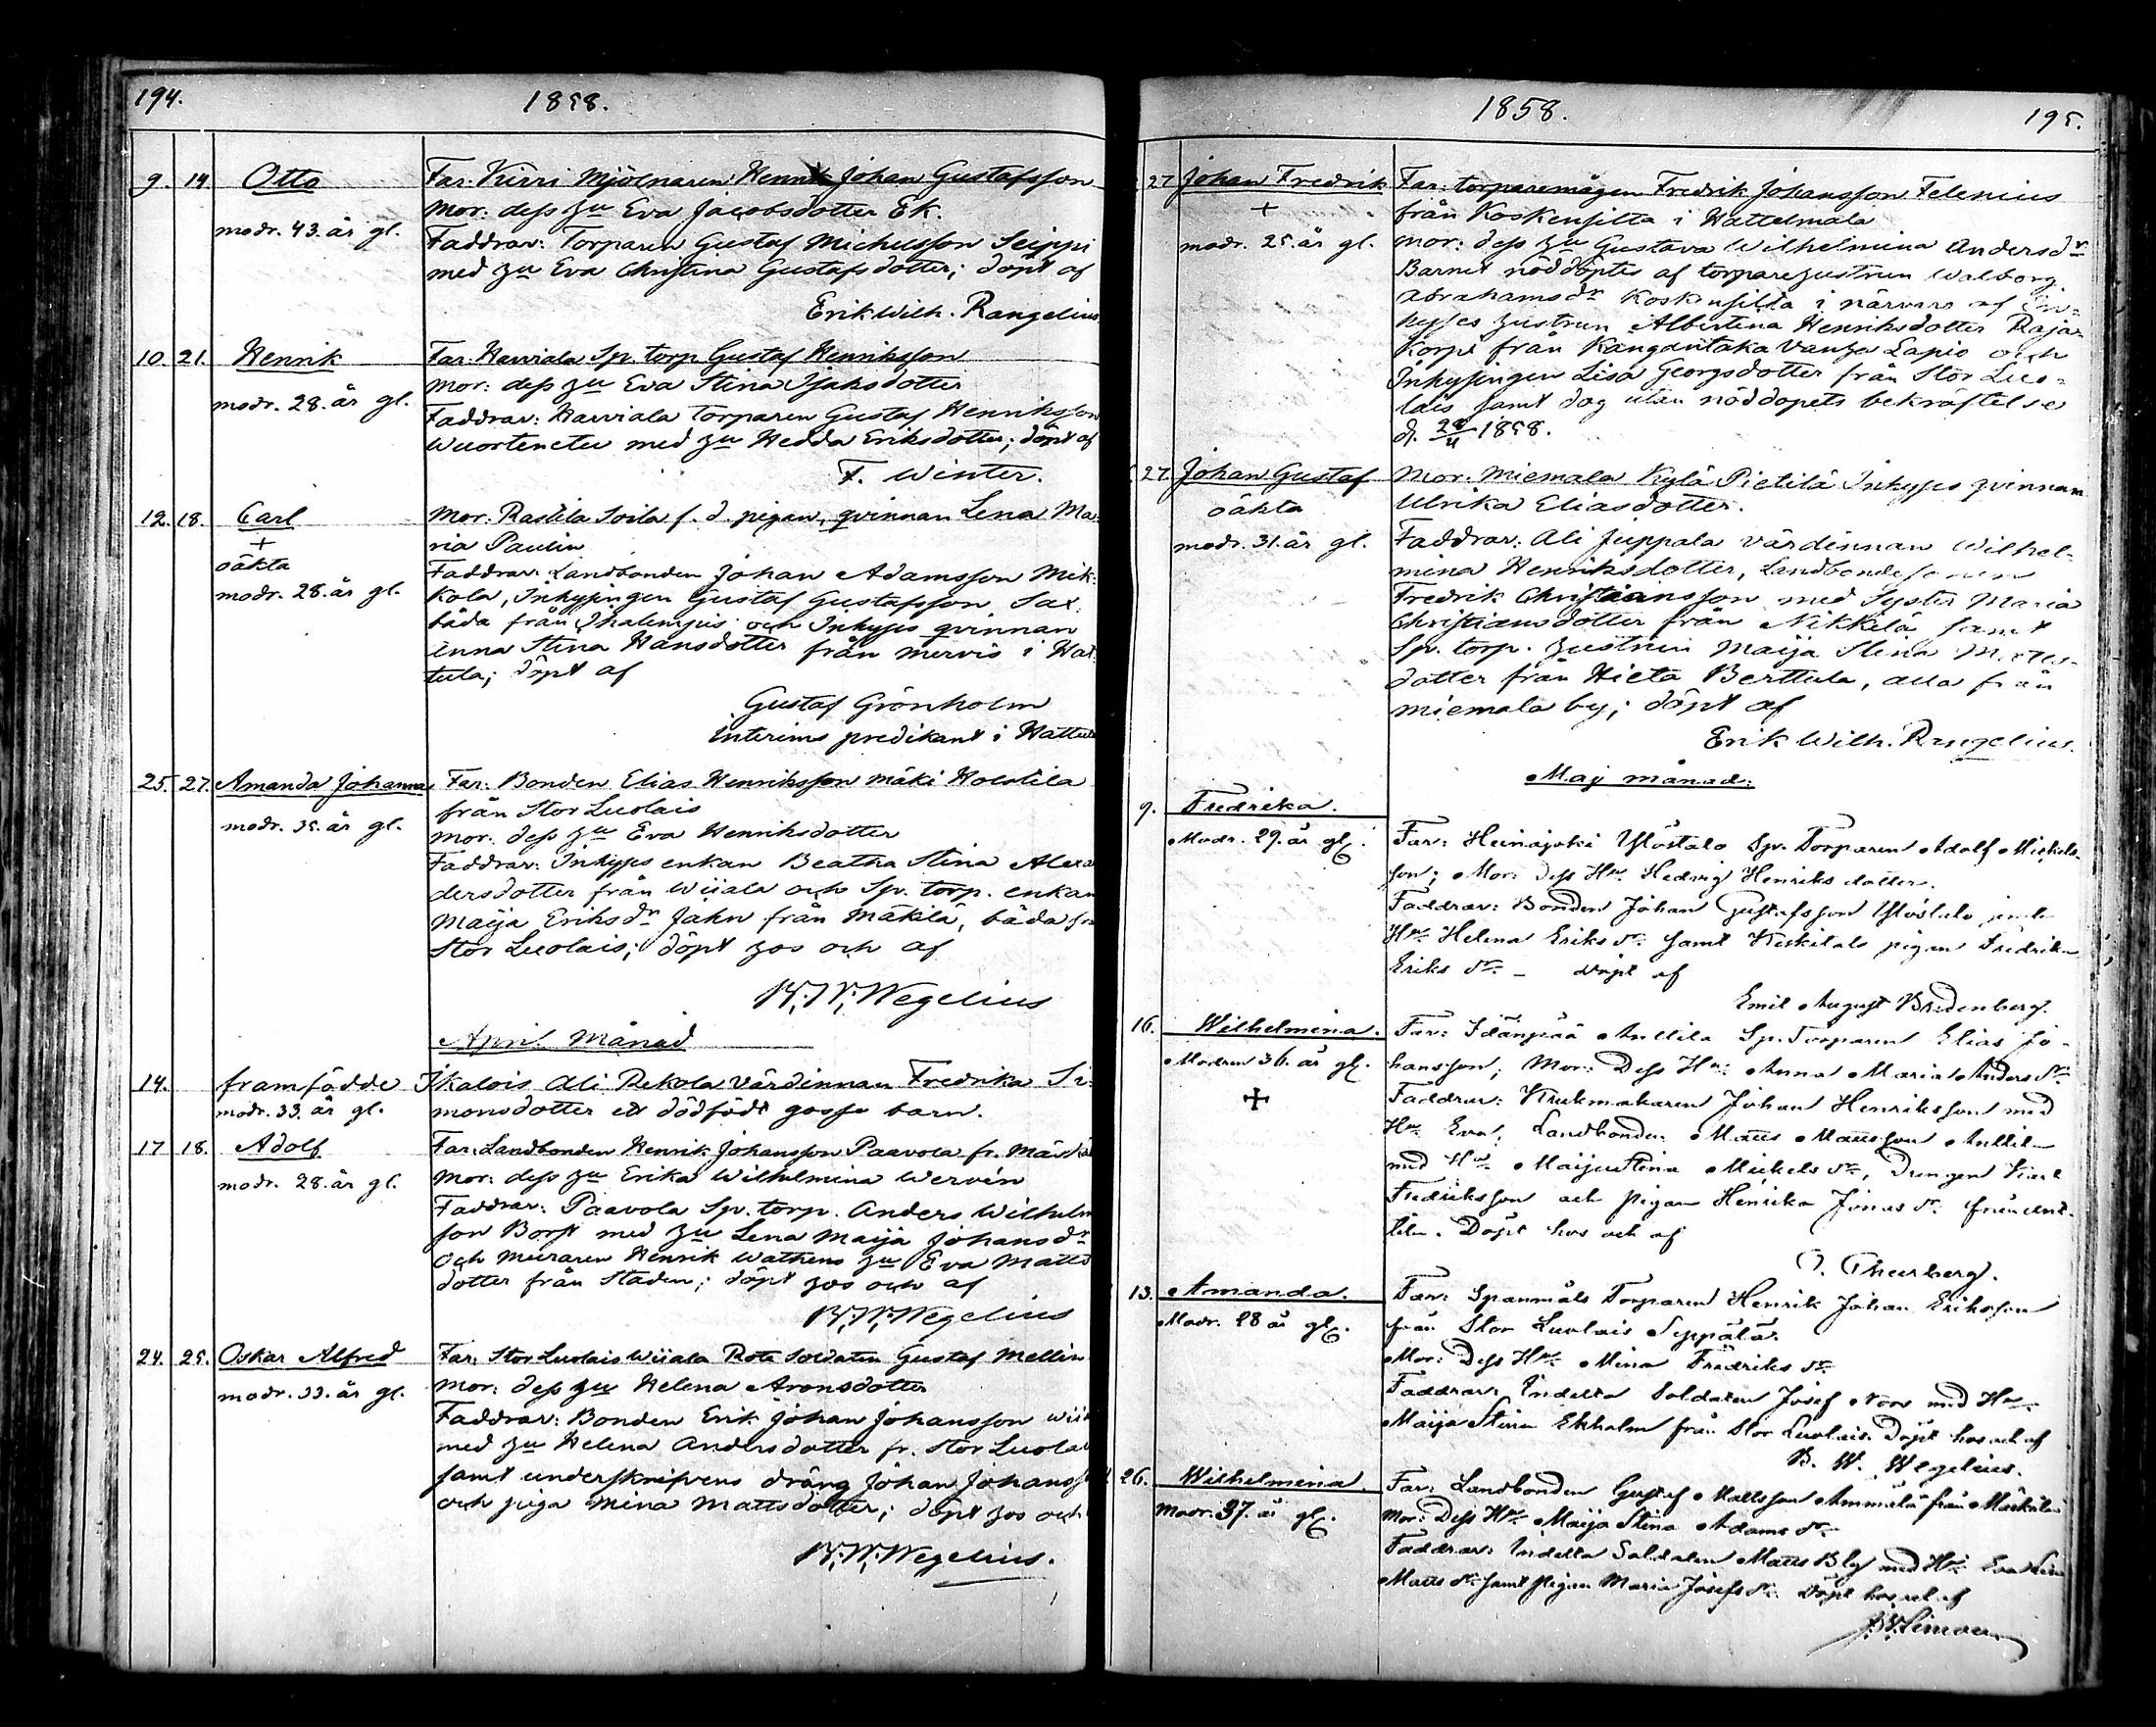 194.
1858.
9. 14
Otto
modr. 43. år gl.
Far. Kirri Mjölnaren Henrik Johan Gustafsson
Mor: dess hu Eva Jacobsdotter Ek.
Faddrar: Torparen Gustaf Michelsson Seippi
med hu Eva Christina Gustafsdotter; döpt af
Erik Wilh. Rangelius
10. 21.
Henrik
modr. 28. år gl.
Far. Harviala Sp. torp Gustaf Henriksson
Mor: dess hu Eva Stina Isaksdotter
Faddrar: Harviala Torparen Gustaf Henriksson
Wuortenetu med hu Hedda Eriksdotter; döpt af
F. Winter.
12. 18.
Carl
+
oäkta
modr. 28. år gl.
Mor: Rastila Soila f. d. pigan, qvinnan Lena Ma:
ria Paulin
Faddrar: Landbonden Johan Adamsson Mik:
kola, Inhysingen Gustaf Gustafsson Sax.
båda från Ihalempis och Inhyses qvinnan
Enna Stina Hansdotter från Mervis i Hat:
tula; döpt af
Gustaf Grönholm
Interims predikant i Hattula
25. 27.
Amanda Johanna
modr. 35. år gl.
Far: Bonden Elias Henriksson Mäki Holstila
från Stor Luolais
Mor: dess hu Eva Henriksdotter
Faddrar: Inhyses enkan Beatha Stina Alexan
dersdotter från Wiiala och Sp. torp. enkan
Maija Eriksdr Jahn från Mäkilä, båda fr
Stor Luolais; döpt hos och af
B. W. Wegelius
April Månad
14.
framfödde
modr. 33. år gl.
Ikalois Ali Rekola värdinnan Fredrika Si:
monsdotter ett dödfödt gosse barn.
17 18.
Adolf
modr. 28. år gl.
Far: Landbonden Henrik Johansson Paavola fr. Märkälä
Mor: dess hu Erika Wilhelmina Wervén
Faddrar: Paavola Sp. torp. Anders Wilhelm
son Borst med hu Lena Maija Johansdr
och muraren Henrik Wathens hu Eva Matts
dotter från Staden; döpt hos och af
B. W. Wegelius
24. 25.
Oskar Alfred
modr. 33. år gl.
Far: Stor Luolais Wiiala Rote Soldaten Gustaf Mellin
Mor: dess hu Helena Aronsdotter
Faddrar: Bonden Erik Johan Johansson Wii
med hu Helena Andersdotter fr. Stor Luola
samt underskrifvens dräng Johan Johansso
och piga Mina Mattsdotter; döpt hos och
B. W. Wegelius.
1858.
195.
27
Johan Fredrik
+
modr. 25. år gl.
Far: torparemågen Fredrik Johansson Felenius
från Koskensilta i Hattelmala
Mor: dess hu Gustava Wilhelmina Andersdr
Barnet nöddöptes af torparehustrun Walborg
Abrahamsdr Koskensilta i närvaro af In:
hyses hustrun Albertina Henriksdotter Raja:
korpi från Kangantaka Vanha Lapio och
Inhysingen Lisa Georgsdotter från Stor Luo:
lais samt dog utan nöddopets bekräftelse
d. 28/4 1858.
27.
Johan Gustaf
oäkta
modr. 31. år gl.
Mor: Miemala Kylä Pietilä Inhyses qvinnan
Ulrika Eliasdotter.
Faddrar: Ali Juppala värdinnan Wilhel:
mina Henriksdotter, Landbondesonen
Fredrik Christiansson med Syster Maria
Christiansdotter från Nikkilä samt
Sp. torp. hustrun Maija Stina Matts
dotter från Hieta Berttula, alla från
Miemala by; döpt af
Erik Wilh. Rangelius.
Maj månad:
9.
Fredrika.
Modr. 29. år gl.
Far: Heinäjoki Ylöstalo Spr. Torparen Adolf Mickels-
son; Mor: dess Hu. Hedvig Henriksdotter.
Faddrar: Bonden Johan Gustafsson Ylöstalo jemte
Hu. Helena Eriks dr. samt Keskitalo pigan Fredrika
Eriks dr. – döpt af
Emil August Bredenberg.
16.
Wilhelmina.
Modren 36. år gl.
+
Far: Idänpää Anttila Sp. Torparen Elias Jo-
hansson; Mor: Dess Hu: Anna Maria Anders dr.
Faddrar: Krukmakaren Johan Henriksson med
Hu. Eva, Landbonden Matts Mattsson Anttila
med Hu. Maija Stina Mickels dr., Drengen Karl
Fredriksson och pigan Henrika Jonas dr. från Ant-
tila. Döpt hos och af
O. Therberg.
13.
Amanda.
Modr. 28 år gl.
Far: Spanmåls Torparen Henrik Johan Eriksson
från Stor Luolais Seppälä.
Mor: Dess Hu. Mina Fredriks dr.
Faddrar: Indelta Soldaten Josef Nors med Hu
Maija Stina Ekholm från Stor Luolais. Döpt hos och af
B. W. Wegelius.
26.
Wilhelmina.
Modr. 37. år gl.
Far: Landbonden Gustaf Mattsson Ammälä från Märkälä
Mor: Dess Hu. Maija Stina Adams dr.
Faddrar: Indelta Soldaten Matts Bly med Hu. Eva Lisa
Matts dr. samt pigan Maria Josefs dr. Döpt hos och af